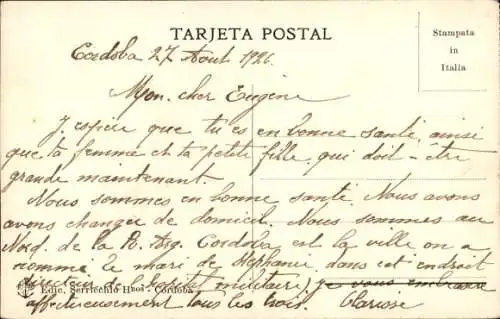 TARJETA POSTAL
Stampata
in
Italia
Cordoba 27 Aout 1926
Mon cher Eugène
J'espère que tu es en bonne santé, ainsi
que ta femme et ta petite fille, qui doit-être
grande maintenant.
Nous sommes en bonne santé. Nous avons
avons changer de domicil. Nous sommes au
Nord de la R. Arg. Cordoba est la ville on a
nommé le mari de Stephanie dans cet endroit
directeur de hopital militaire) je vous embrasse
affectueusement tous les trois. Clarisse
Edic. Serrecchio Hnos - Córdoba